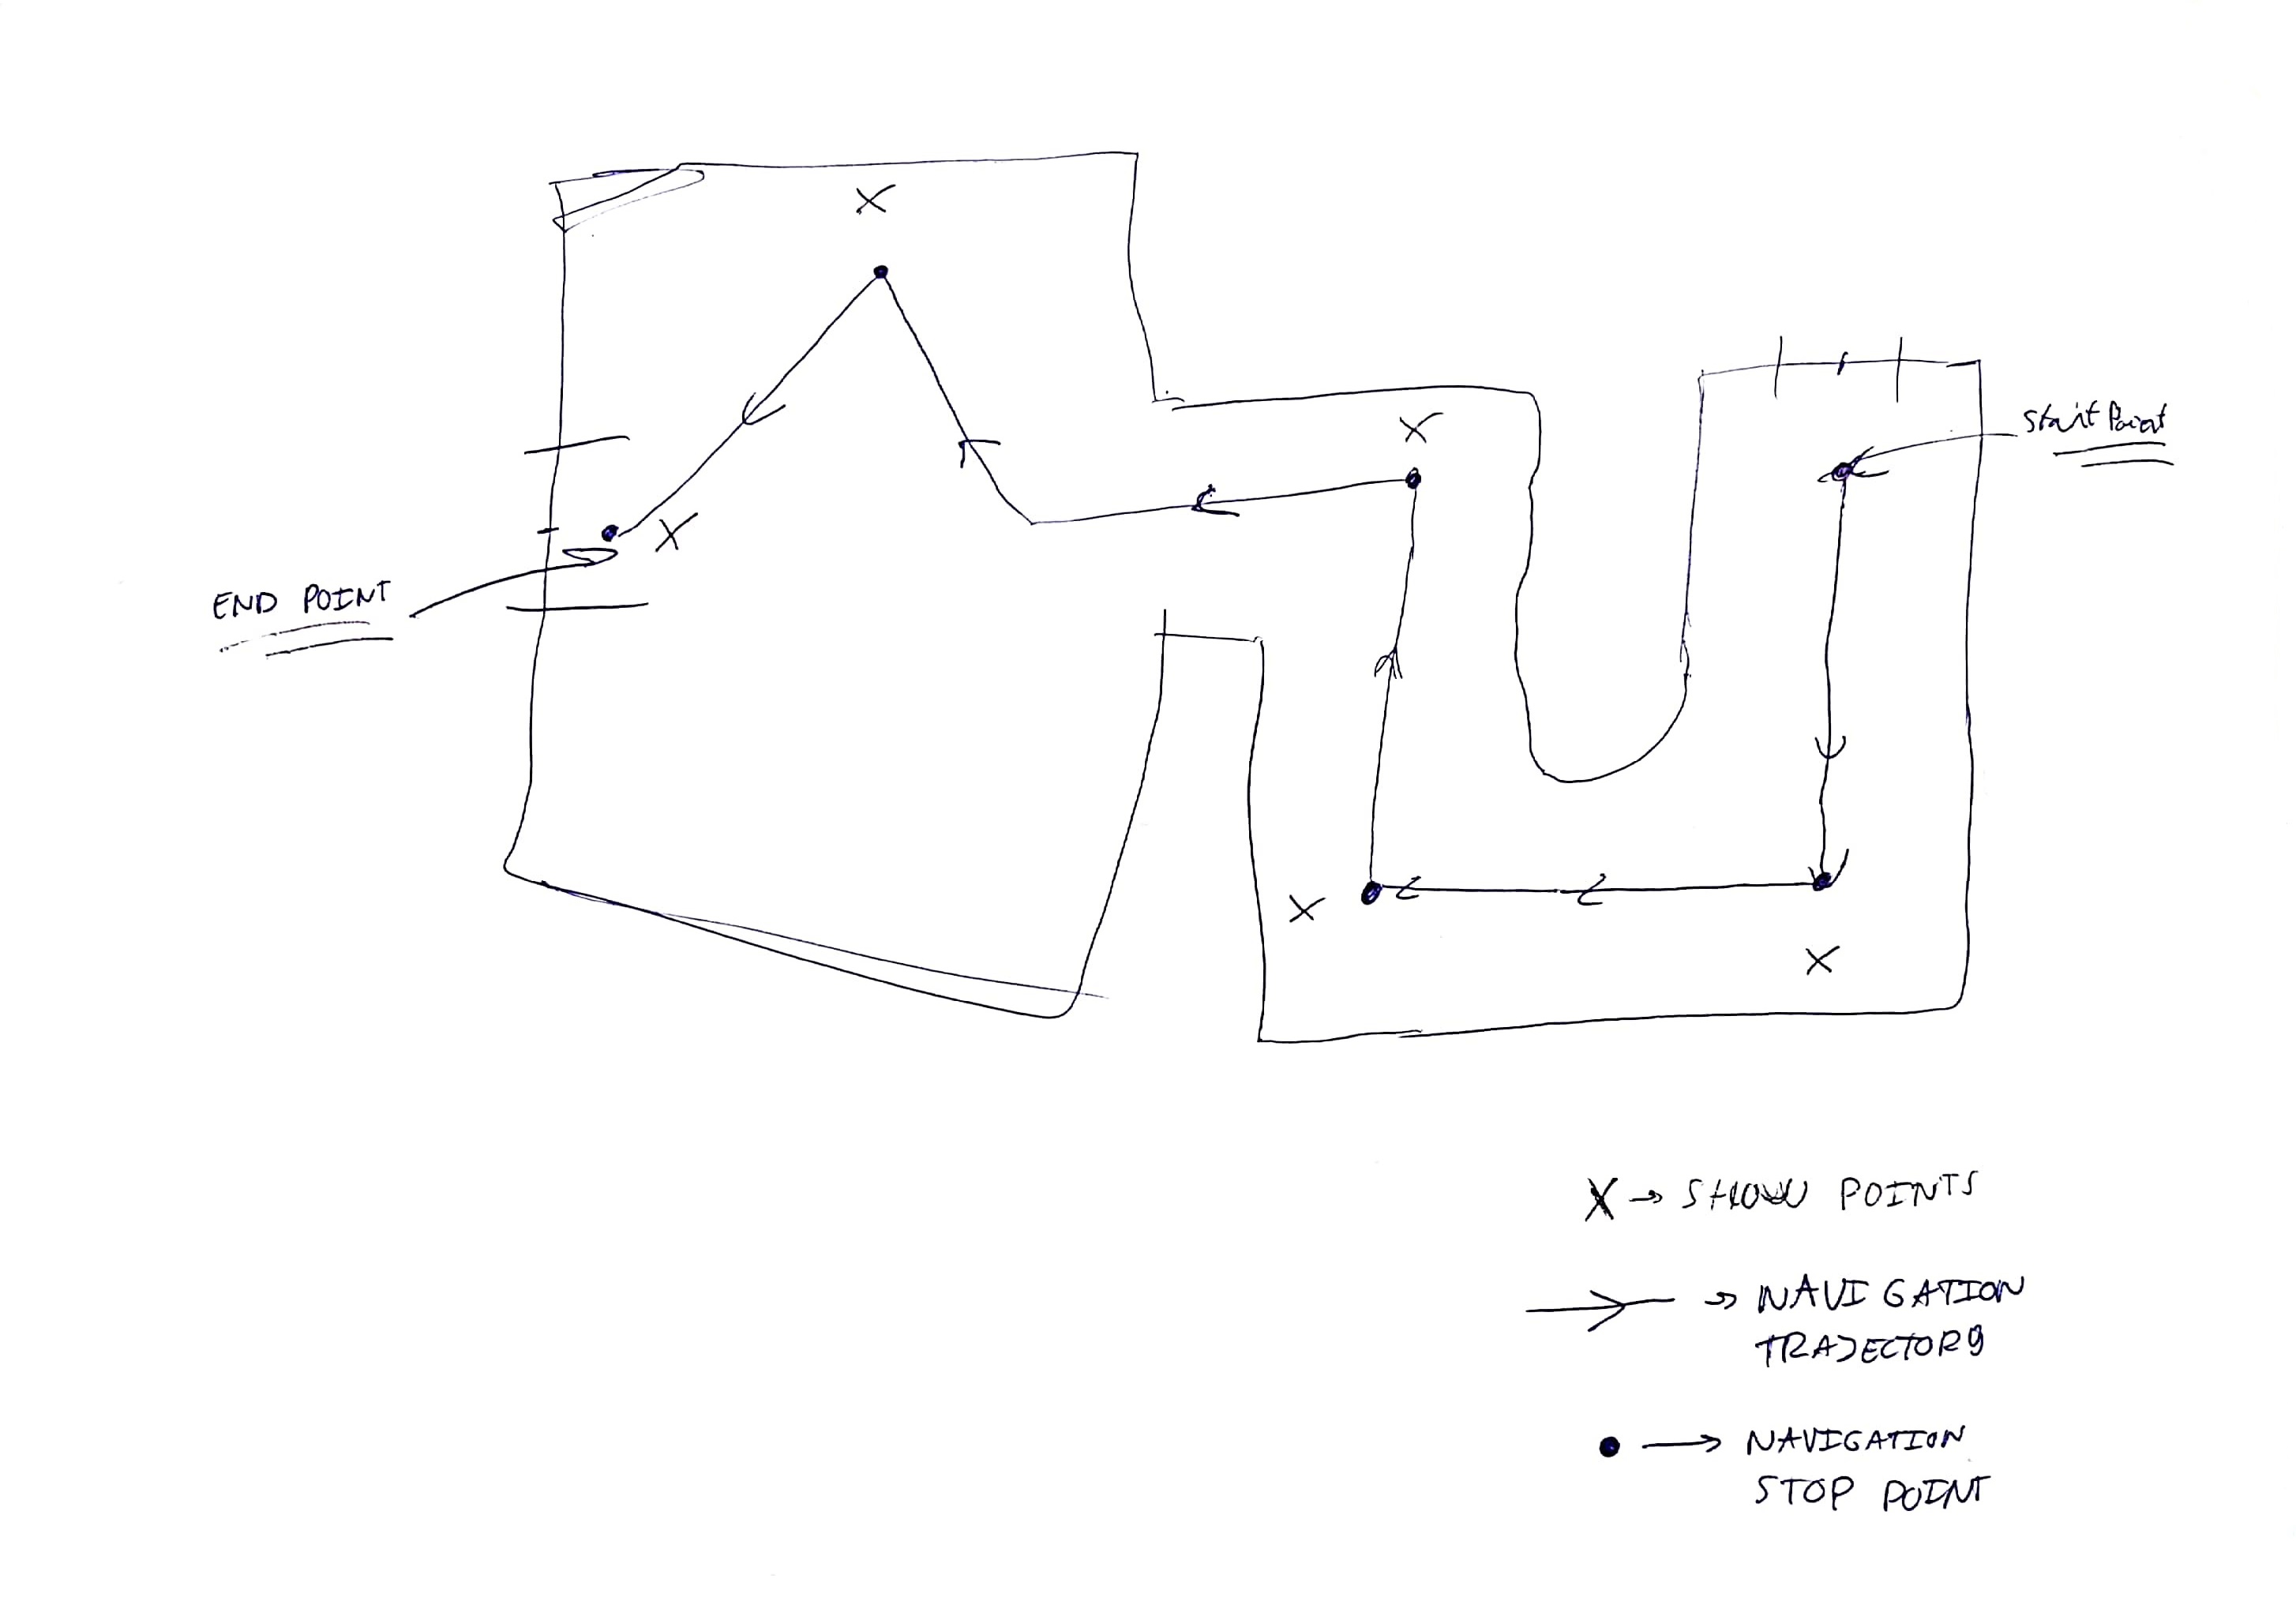 Start Point
END POINT
X → SHOW POINTS
→ NAVIGATION
TRAJECTORY
● → NAVIGATION
STOP POINT